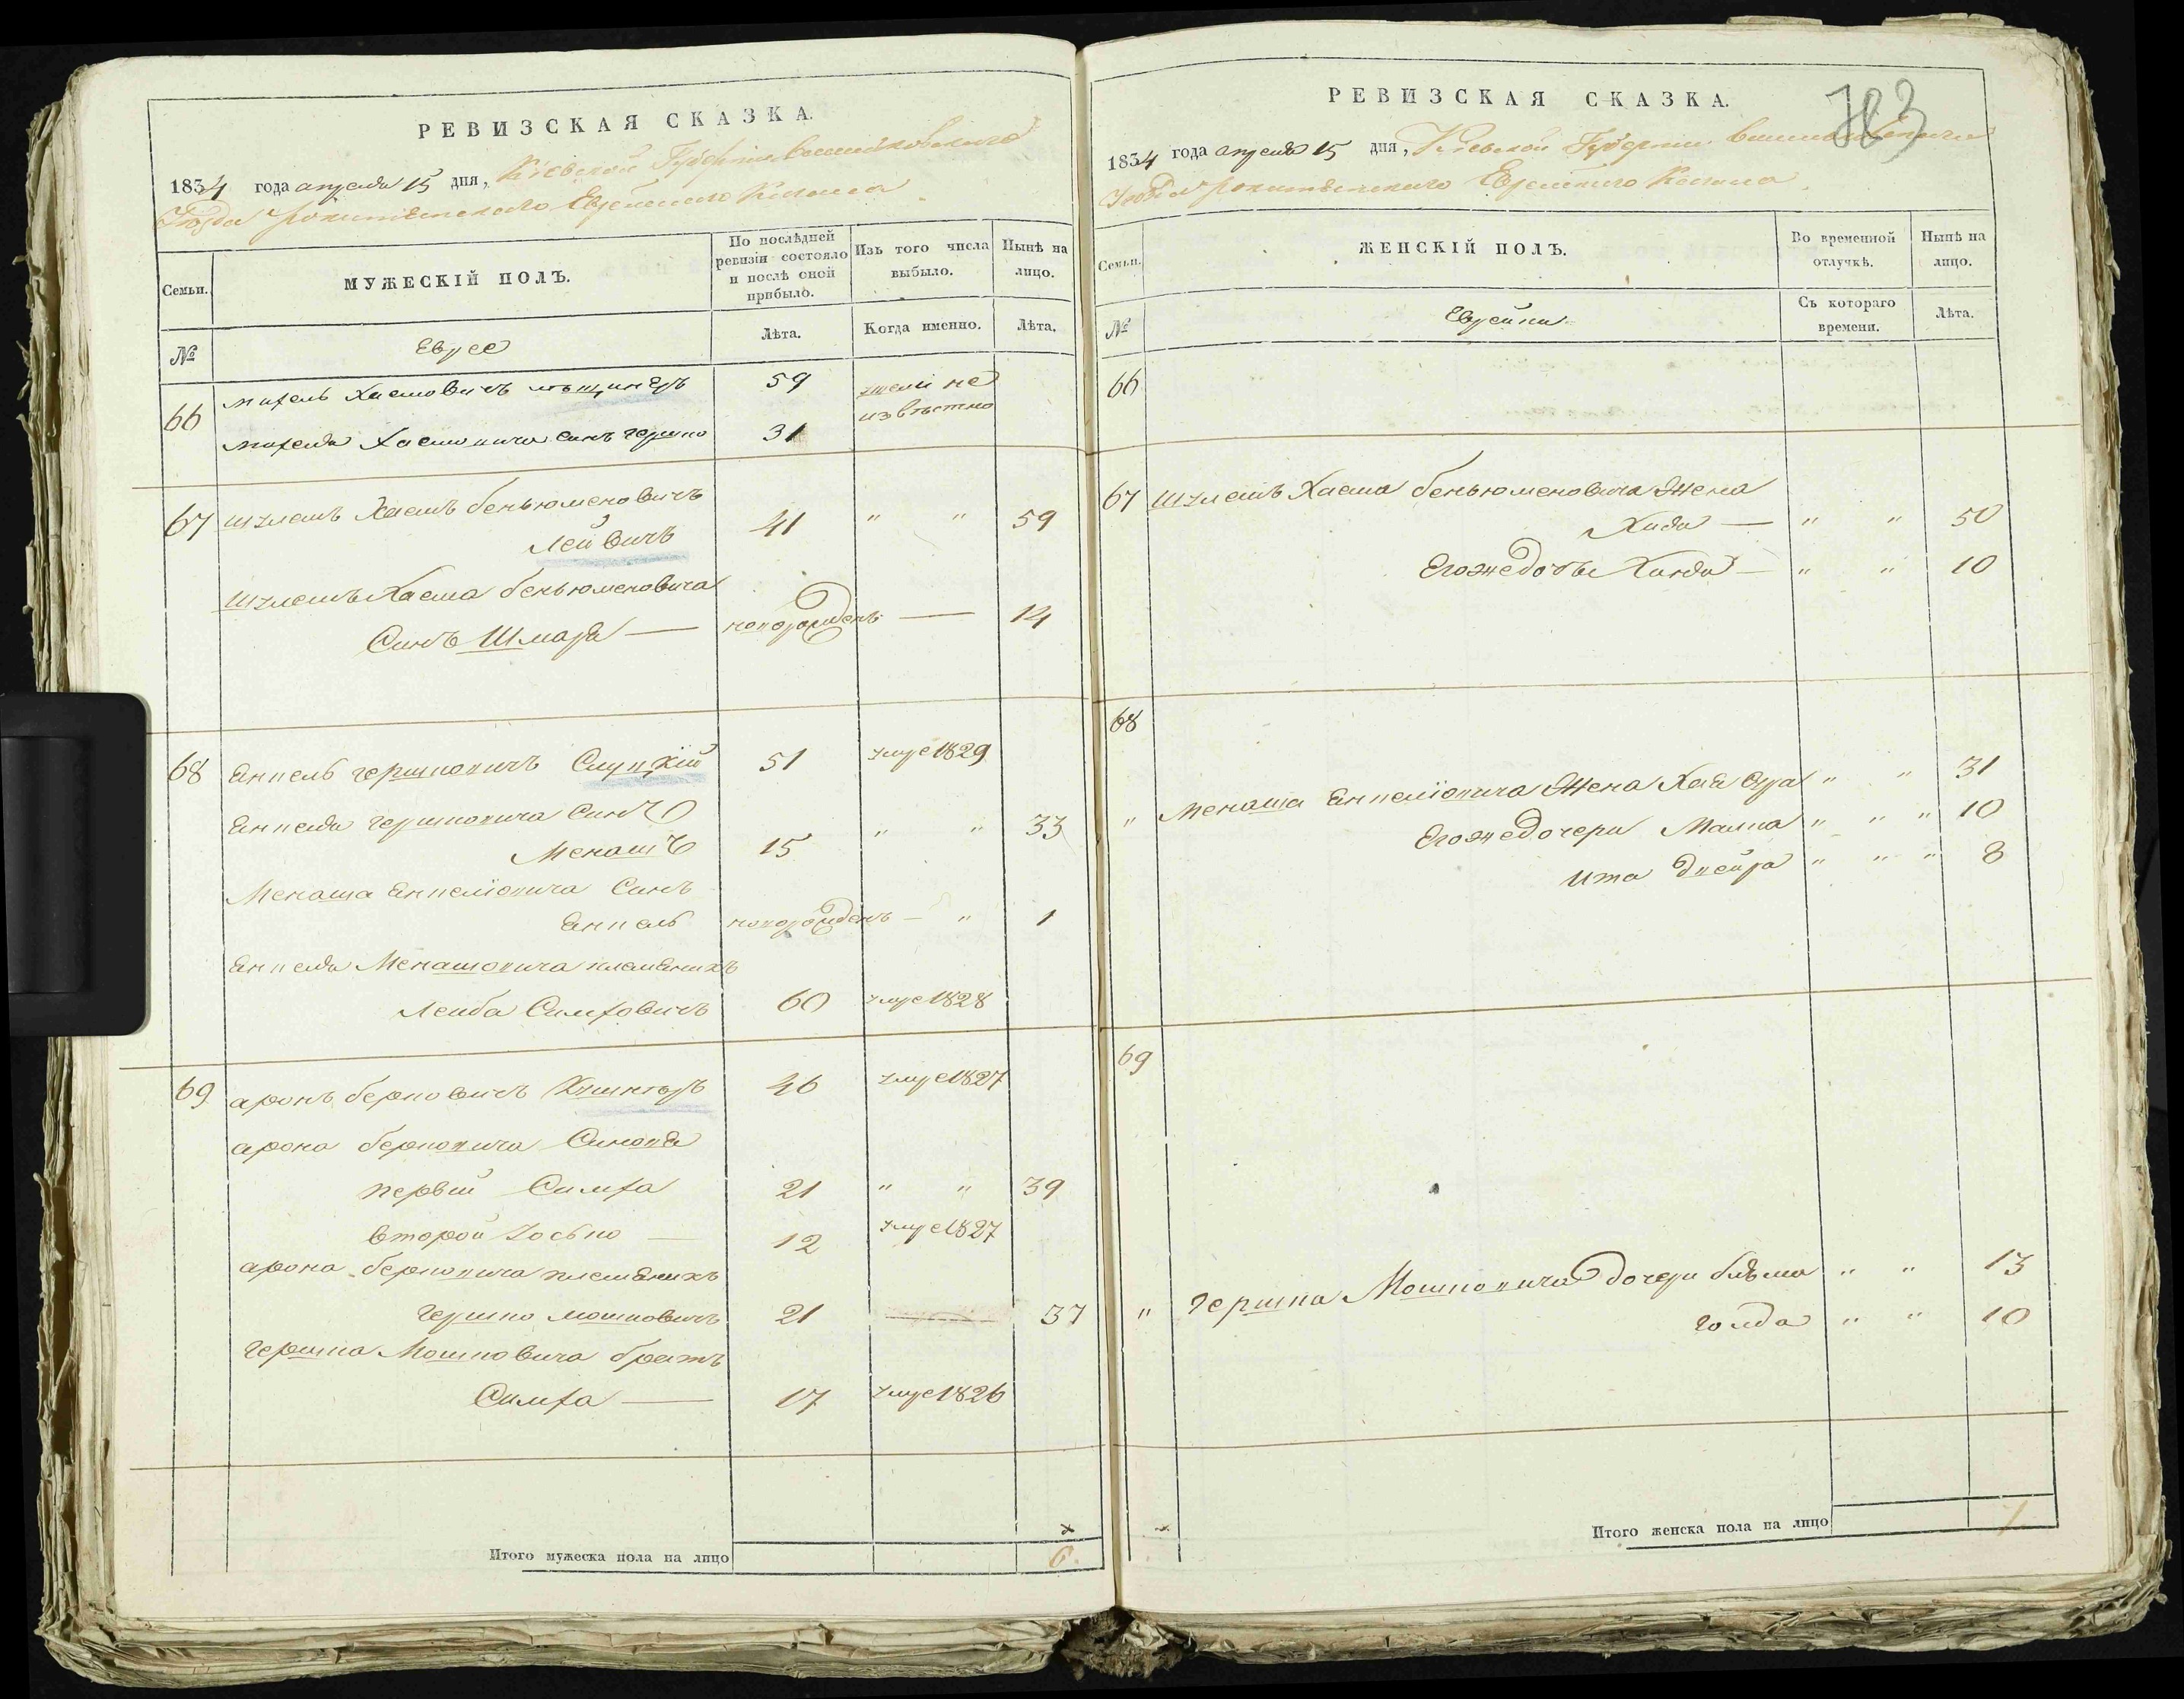 РЕВИЗСКАЯ СКАЗКА.
1834 года апреля 15 дня, Кіевской Губерніи Васильковского
Уезда Рокитянского Еврейского Кагала
Семьи.
МУЖЕСКІЙ ПОЛЪ.
По послѣдней ревизіи состояло и послѣ оной прибыло.
Изъ того числа выбыло.
Нынѣ на лицо.
№
Еврее
Лѣта.
Когда именно.
Лѣта.
66
Михель Хаемовичъ
59
неизвѣстно
Михеля Хаемовича синъ Гершко
31
67
Шулемъ Хаемъ беньюменовичъ
Лейвичъ
41 " " 59
Шулемъ Хаема беньюменовича
Синъ Шмаря — новорожденъ — 14
68
Янкель Гершковичъ Слуцкій 51 умре 1829
Янкеля Гершковича Синъ
Менашъ 15 " " 33
Менаша Янкеліовича Синъ
Янкель новорожденъ — " 1
Янкеля Менашовича племяникъ
Лейба Симховичъ 60 умре 1828
69
Аронъ берковичъ 46 умре 1827
Арона берковича Синовя
первій Симха 21 " " 39
второй Іосько — 12 умре 1827
Арона берковича племяникъ
Гершко Мошковичъ 21 — 37
Гершка Мошковича братъ
Симха — 17 умре 1826
Итого мужеска пола на лицо 6
РЕВИЗСКАЯ СКАЗКА.
1834 года апреля 15 дня, Кіевской Губерніи Васильковского
Уезда Рокитянского Еврейского Кагала
Семьи.
ЖЕНСКІЙ ПОЛЪ.
Во временной отлучкѣ.
Нынѣ на лицо.
№
Еврейки
Съ котораго времени.
Лѣта.
66
67
Шулемъ Хаема беньюменовича Жена
— " " 50
Егожедочь — " " 10
68
" Менаша Янкеліовича Жена Хая Сура " " 31
Егожедочери Малка " " " 10
Ита Двейра " " " 8
69
" Гершка Мошковича дочери блюма " " 13
Голда " " 10
Итого женска пола на лицо 7